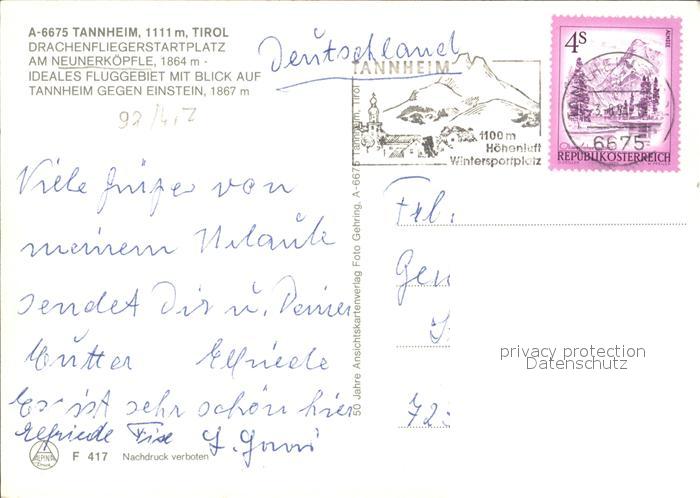 A-6675 TANNHEIM, 1111 m, TIROL
DRACHENFLIEGERSTARTPLATZ
AM NEUNERKÖPFLE, 1864 m -
IDEALES FLUGGEBIET MIT BLICK AUF
TANNHEIM GEGEN EINSTEIN, 1867 m
Deutschland
TANNHEIM
1100 m
Höhenluft
Wintersportplatz
4S
ALMSEE
6675
REPUBLIK ÖSTERREICH
Viele Grüße von
meinem Urlaub
sendet Dir u. Deiner
Mutter Elfriede
Es ist sehr schön hier
Elfriede
F 417 Nachdruck verboten
50 Jahre Ansichtskartenverlag Foto Gehring, A-6675 Tannheim, Tirol
Frl.
72
privacy protection
Datenschutz